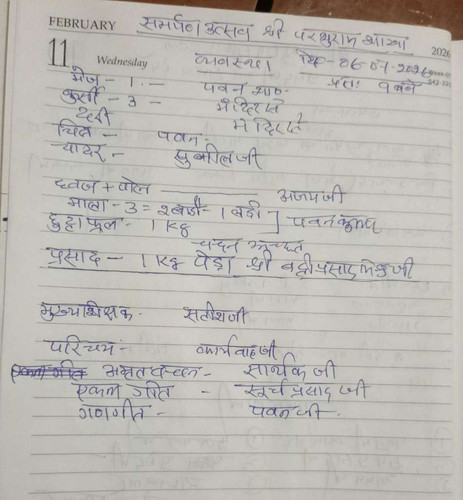 FEBRUARY समर्पण उत्सव श्री परशुराम शाखा 2026
11 Wednesday व्यवस्था दि०-06-07-2026
प्रातः 9 बजे
मेज - 1 - पवन
कुर्सी - 3 - मंदिर से
दरी मंदिर से
चित्र - पवन
चादर - सुशीलजी
ध्वज + पोल अजयजी
माला - 3 = 2 छोटी - 1 बड़ी ] पवन कुमार
टुटा फूल - 1 Kg
चन्दन अक्षत
प्रसाद - 1 Kg पेड़ा श्री बद्रीप्रसाद जी
मुख्यशिक्षक - सतीशजी
परिचय - कार्यवाह जी
अमृतवचन - सार्थक जी
एकल गीत - सूर्य प्रसाद जी
गणगीत - पवनजी